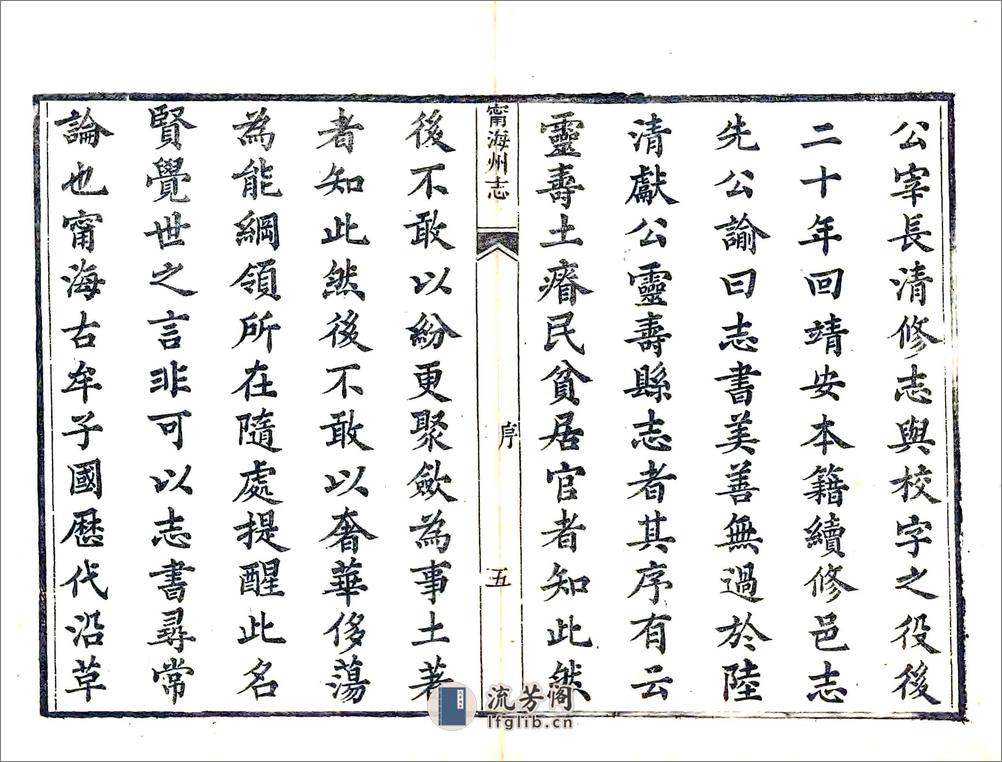 公宰長清修志與校字之役後
二十年回靖安本籍續修邑志
先公諭曰志書美善無過於陸
清獻公靈壽縣志者其序有云
靈壽土瘠民貧居官者知此然
甯海州志
序
五
後不敢以紛更聚斂為事土著
者知此然後不敢以奢華侈蕩
為能綱領所在隨處提醒此名
賢覺世之言非可以志書尋常
論也甯海古牟子國歷代沿革
流芳阁
lfglib.cn